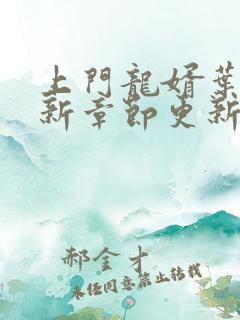 上門龍婿葉
新章節更新
郝金才
未經同意禁止轉載